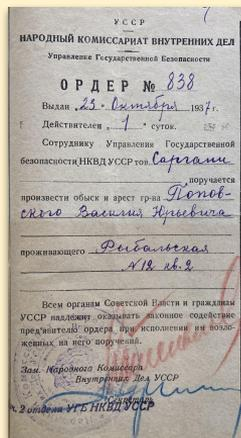 УССР
НАРОДНЫЙ КОМИССАРИАТ ВНУТРЕННИХ ДЕЛ
Управление Государственной Безопасности
ОРДЕР № 838
Выдан „23“ Октября 1937 г.
Действителен „1“ суток.
Сотруднику Управления Государственной
безопасности НКВД УССР тов.
поручается
произвести обыск и арест гр-на Попов-
ского Василия Юрьевича
проживающего Рыбальская
№12 кв. 2
Всем органам Советской Власти и гражданам
УССР надлежит оказывать законное содействие
пред'явителю ордера при исполнении им возло-
женных на него поручений.
Зам. Народного Комиссара
Внутренних Дел УССР
Секретарь
ч. 2 отдела УГБ НКВД УССР